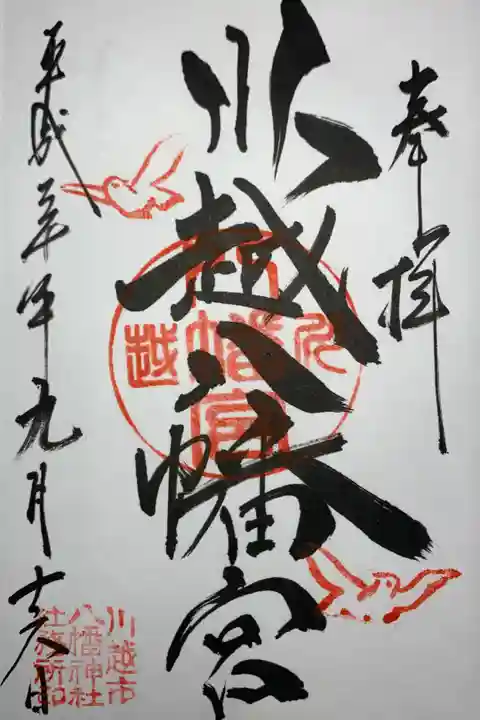 奉拝
川越八幡宮
川
八幡宮
越
平成三十年九月十六日
川越市
八幡神社
社務所印